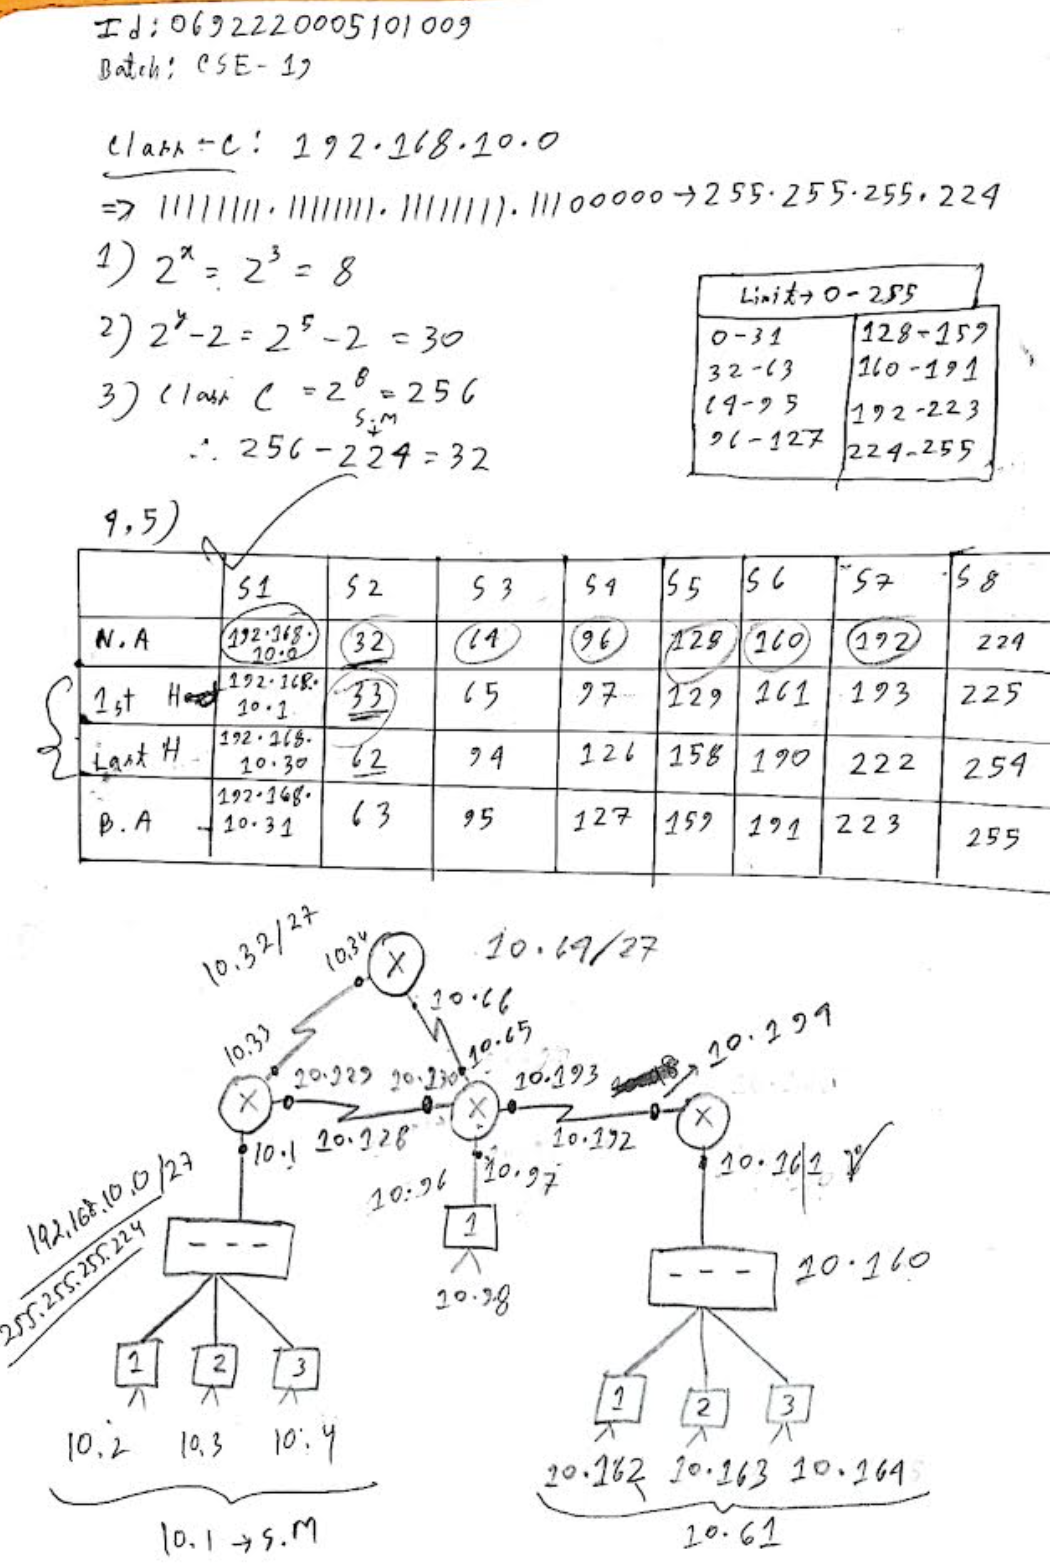 Id: 0692220005101009
Batch: CSE-19
Class-C: 192.168.10.0
=> 11111111.11111111.11111111.11100000→255.255.255.224
1) 2^x = 2^3 = 8
2) 2^y-2 = 2^5-2 = 30
3) Class C = 2^8 = 256
S.M
∴ 256-224=32
Limit→0-255
0-31 128-159
32-63 160-191
64-95 192-223
96-127 224-255
4,5)
S1 S2 S3 S4 S5 S6 S7 S8
N.A 192.168.10.0 32 64 96 128 160 192 224
1st H 192.168.10.1 33 65 97 129 161 193 225
Last H 192.168.10.30 62 94 126 158 190 222 254
B.A 192.168.10.31 63 95 127 159 191 223 255
10.32/27 10.34 X 10.64/27
10.66
10.33 10.65 10.194
10.129 10.130 10.193
X X X
10.128 10.192
10.1 10.96 10.97 10.161
192.168.10.0/27
255.255.255.224
1
10.98
10.160
1 2 3
10.2 10.3 10.4
1 2 3
10.162 10.163 10.164
10.1 → S.M
10.61